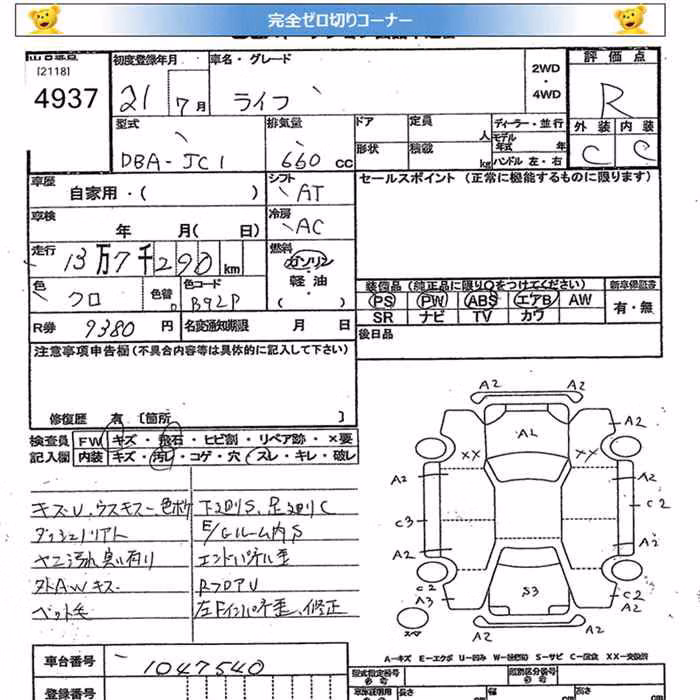 完全ゼロ切りコーナー
[2118]
4937
初度登録年月
21 7月
車名・グレード
ライフ
2WD
・
4WD
評価点
R
外装 内装
C C
型式
DBA-JC1
排気量
660 cc
ドア
形状
定員 人
積載 kg
ディーラー・並行
モデル年式 年
ハンドル 左・右
車歴
自家用・( )
シフト
AT
セールスポイント (正常に機能するものに限ります)
車検
年 月( 日)
冷房
AC
走行
13万7千290km
燃料
ガソリン
軽油
( )
色
クロ
色替
カラーコード
B92P
装備品 (純正品に限り○をつけてください)
PS PW ABS エアB AW
SR ナビ TV カワ
新車保証書
有・無
R券 9380 円
名変通知期限 月 日
後日品
注意事項申告欄(不具合内容等は具体的に記入して下さい)
修復歴 有 [箇所 ]
検査員
記入欄
FW キズ・飛石・ヒビ割・リペア跡・×要
内装 キズ・汚レ・コゲ・穴・スレ・キレ・破レ
キズU、ウスキズ、色ボケ
ダッシュノリアト
ヤニ汚れ臭い有り
外AWキズ
ペット毛
下廻りS、足廻りC
E/GルームS
エンドパネル歪
RフロアU
左Fインパネ歪、修正
A2 A2
A2 A2
AL
XX XX
A2 A2
C3 C2
A2 A2
C2 C2
A3 A2
S3
A2 A2
A-キズ E-エクボ U-凹み S-サビ C-腐食 XX-交換済
車台番号
1047540
登録番号
型式指定番号
類別区分番号
長さ 幅 高さ